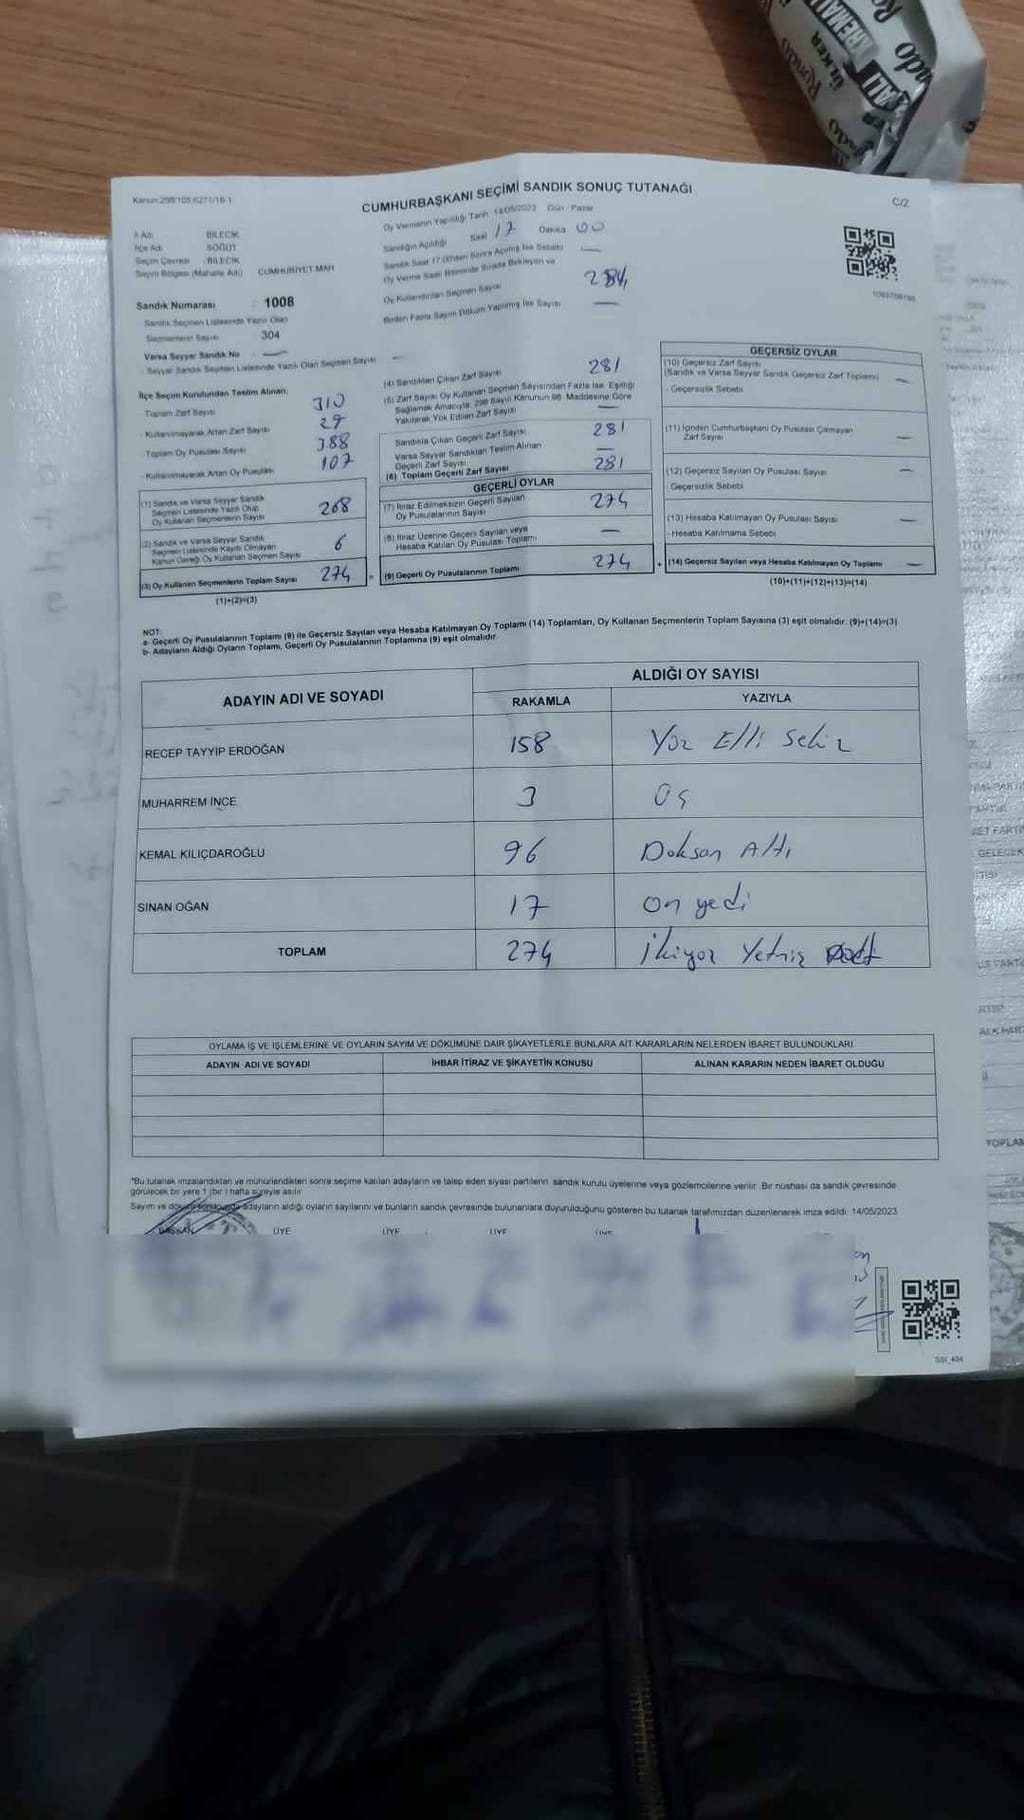 Rondo
ÜLKER
KREMALI
Kanun:298/105;6271/16-1
CUMHURBAŞKANI SEÇİMİ SANDIK SONUÇ TUTANAĞI
C/2
Oy Vermenin Yapıldığı Tarih: 14/05/2023 Gün: Pazar
İl Adı : BİLECİK
İlçe Adı : SÖĞÜT
Seçim Çevresi : BİLECİK
Seçim Bölgesi (Mahalle Adı) CUMHURİYET MAH
Sandığın Açıldığı Saat 17 Dakika 00
Sandık Saat 17.00'den Sonra Açılmış İse Sebebi —
Oy Verme Saati Bitiminde Sırada Bekleyen ve
Oy Kullandırılan Seçmen Sayısı 284
Birden Fazla Sayım Döküm Yapılmış İse Sayısı —
Sandık Numarası : 1008
Sandık Seçmen Listesinde Yazılı Olan
Seçmenlerin Sayısı 304
Varsa Seyyar Sandık No : —
Seyyar Sandık Seçmen Listesinde Yazılı Olan Seçmen Sayısı —
İlçe Seçim Kurulundan Teslim Alınan;
Toplam Zarf Sayısı 310
- Kullanılmayarak Artan Zarf Sayısı 29
- Toplam Oy Pusulası Sayısı 388
- Kullanılmayarak Artan Oy Pusulası 107
(1) Sandık ve Varsa Seyyar Sandık
Seçmen Listesinde Yazılı Olup
Oy Kullanan Seçmenlerin Sayısı 268
(2) Sandık ve Varsa Seyyar Sandık
Seçmen Listesinde Kayıtlı Olmayan
Kanun Gereği Oy Kullanan Seçmen Sayısı 6
(3) Oy Kullanan Seçmenlerin Toplam Sayısı 274
(1)+(2)=(3)
(4) Sandıktan Çıkan Zarf Sayısı 281
(5) Zarf Sayısı Oy Kullanan Seçmen Sayısından Fazla İse, Eşitliği
Sağlamak Amacıyla, 298 Sayılı Kanunun 98. Maddesine Göre
Yakılarak Yok Edilen Zarf Sayısı —
Sandıkta Çıkan Geçerli Zarf Sayısı 281
Varsa Seyyar Sandıktan Teslim Alınan
Geçerli Zarf Sayısı —
(6) Toplam Geçerli Zarf Sayısı 281
GEÇERLİ OYLAR
(7) İtiraz Edilmeksizin Geçerli Sayılan
Oy Pusulalarının Sayısı 274
(8) İtiraz Üzerine Geçerli Sayılan veya
Hesaba Katılan Oy Pusulası Toplamı —
(9) Geçerli Oy Pusulalarının Toplamı 274
GEÇERSİZ OYLAR
(10) Geçersiz Zarf Sayısı
(Sandık ve Varsa Seyyar Sandık Geçersiz Zarf Toplamı) —
- Geçersizlik Sebebi:
(11) İçinden Cumhurbaşkanı Oy Pusulası Çıkmayan
Zarf Sayısı —
(12) Geçersiz Sayılan Oy Pusulası Sayısı —
- Geçersizlik Sebebi
(13) Hesaba Katılmayan Oy Pusulası Sayısı —
- Hesaba Katılmama Sebebi
(14) Geçersiz Sayılan veya Hesaba Katılmayan Oy Toplamı —
(10)+(11)+(12)+(13)=(14)
NOT:
a- Geçerli Oy Pusulalarının Toplamı (9) ile Geçersiz Sayılan veya Hesaba Katılmayan Oy Toplamı (14) Toplamları, Oy Kullanan Seçmenlerin Toplam Sayısına (3) eşit olmalıdır. (9)+(14)=(3)
b- Adayların Aldığı Oyların Toplamı, Geçerli Oy Pusulalarının Toplamına (9) eşit olmalıdır.
ADAYIN ADI VE SOYADI
ALDIĞI OY SAYISI
RAKAMLA YAZIYLA
RECEP TAYYİP ERDOĞAN 158 Yüz Elli Sekiz
MUHARREM İNCE 3 Üç
KEMAL KILIÇDAROĞLU 96 Doksan Altı
SİNAN OĞAN 17 On yedi
TOPLAM 274 İkiyüz Yetmiş
OYLAMA İŞ VE İŞLEMLERİNE VE OYLARIN SAYIM VE DÖKÜMÜNE DAİR ŞİKAYETLERLE BUNLARA AİT KARARLARIN NELERDEN İBARET BULUNDUKLARI
ADAYIN ADI VE SOYADI İHBAR İTİRAZ VE ŞİKAYETİN KONUSU ALINAN KARARIN NEDEN İBARET OLDUĞU
*Bu tutanak imzalandıktan ve mühürlendikten sonra seçime katılan adayların ve talep eden siyasi partilerin sandık kurulu üyelerine veya gözlemcilerine verilir. Bir nüshası da sandık çevresinde
görülecek bir yere 1 (bir ) hafta süreyle asılır.
Sayım ve döküm sonucunda adayların aldığı oyların sayılarını ve bunların sandık çevresinde bulunanlara duyurulduğunu gösteren bu tutanak tarafımızdan düzenlenerek imza edildi. 14/05/2023
BAŞKAN ÜYE ÜYE ÜYE ÜYE
SSI_404
GELECEK
TOPLAM